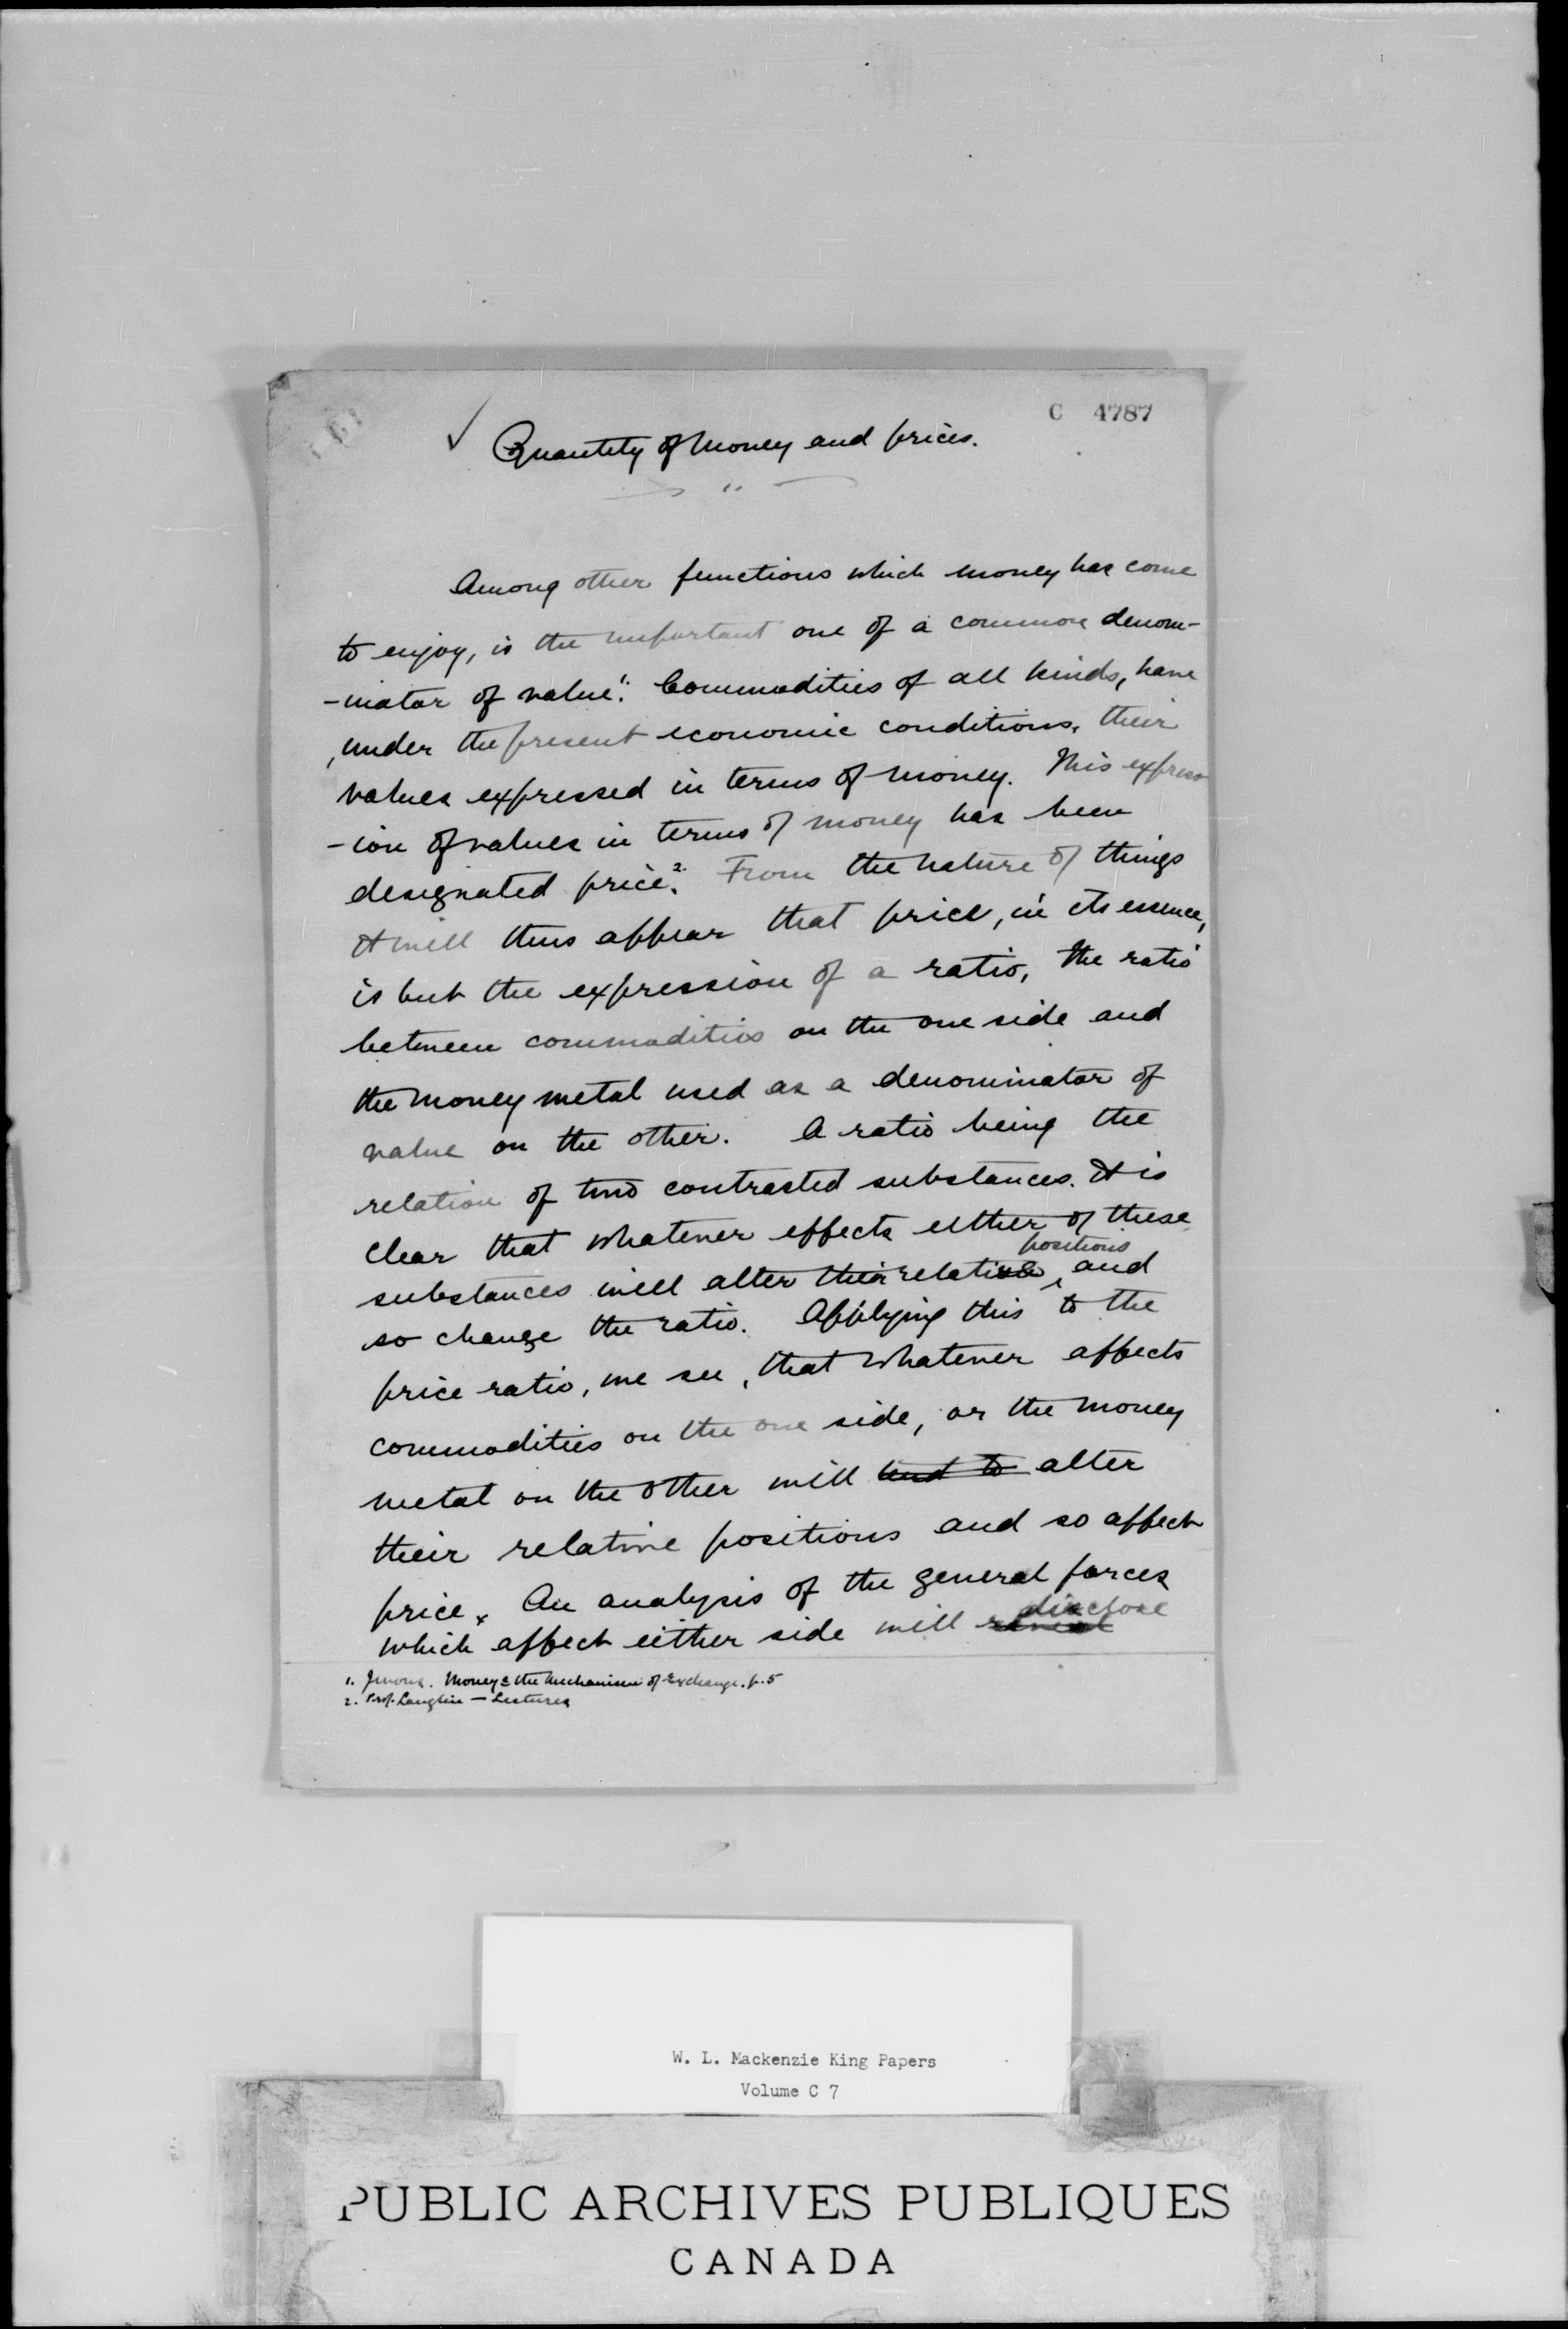 C 4787
Quantity of Money and prices.
Among other functions which money has come
to enjoy, is the important one of a common denom-
-inator of value.1 Commodities of all kinds, have
, under the present economic conditions, their
values expressed in terms of money. This express
-ion of values in terms of money has been
designated price.2 From the nature of things
it will thus appear that price, in its essence,
is but the expression of a ratio, the ratio
between commodities on the one side and
the money metal used as a denominator of
value on the other. A ratio being the
relation of two contrasted substances. It is
clear that whatever effects either of these
positions
substances will alter their relative, and
so change the ratio. Applying this to the
price ratio, we see, that whatever affects
commodities on the one side, or the money
metal on the other will tend to alter
their relative positions and so affect
price. An analysis of the general forces
disclose
which affect either side will reveal
1. Jevons. Money & the Mechanism of Exchange. p. 5
2. Prof. Laughlin — Lectures
W. L. Mackenzie King Papers
Volume C 7
PUBLIC ARCHIVES PUBLIQUES
CANADA